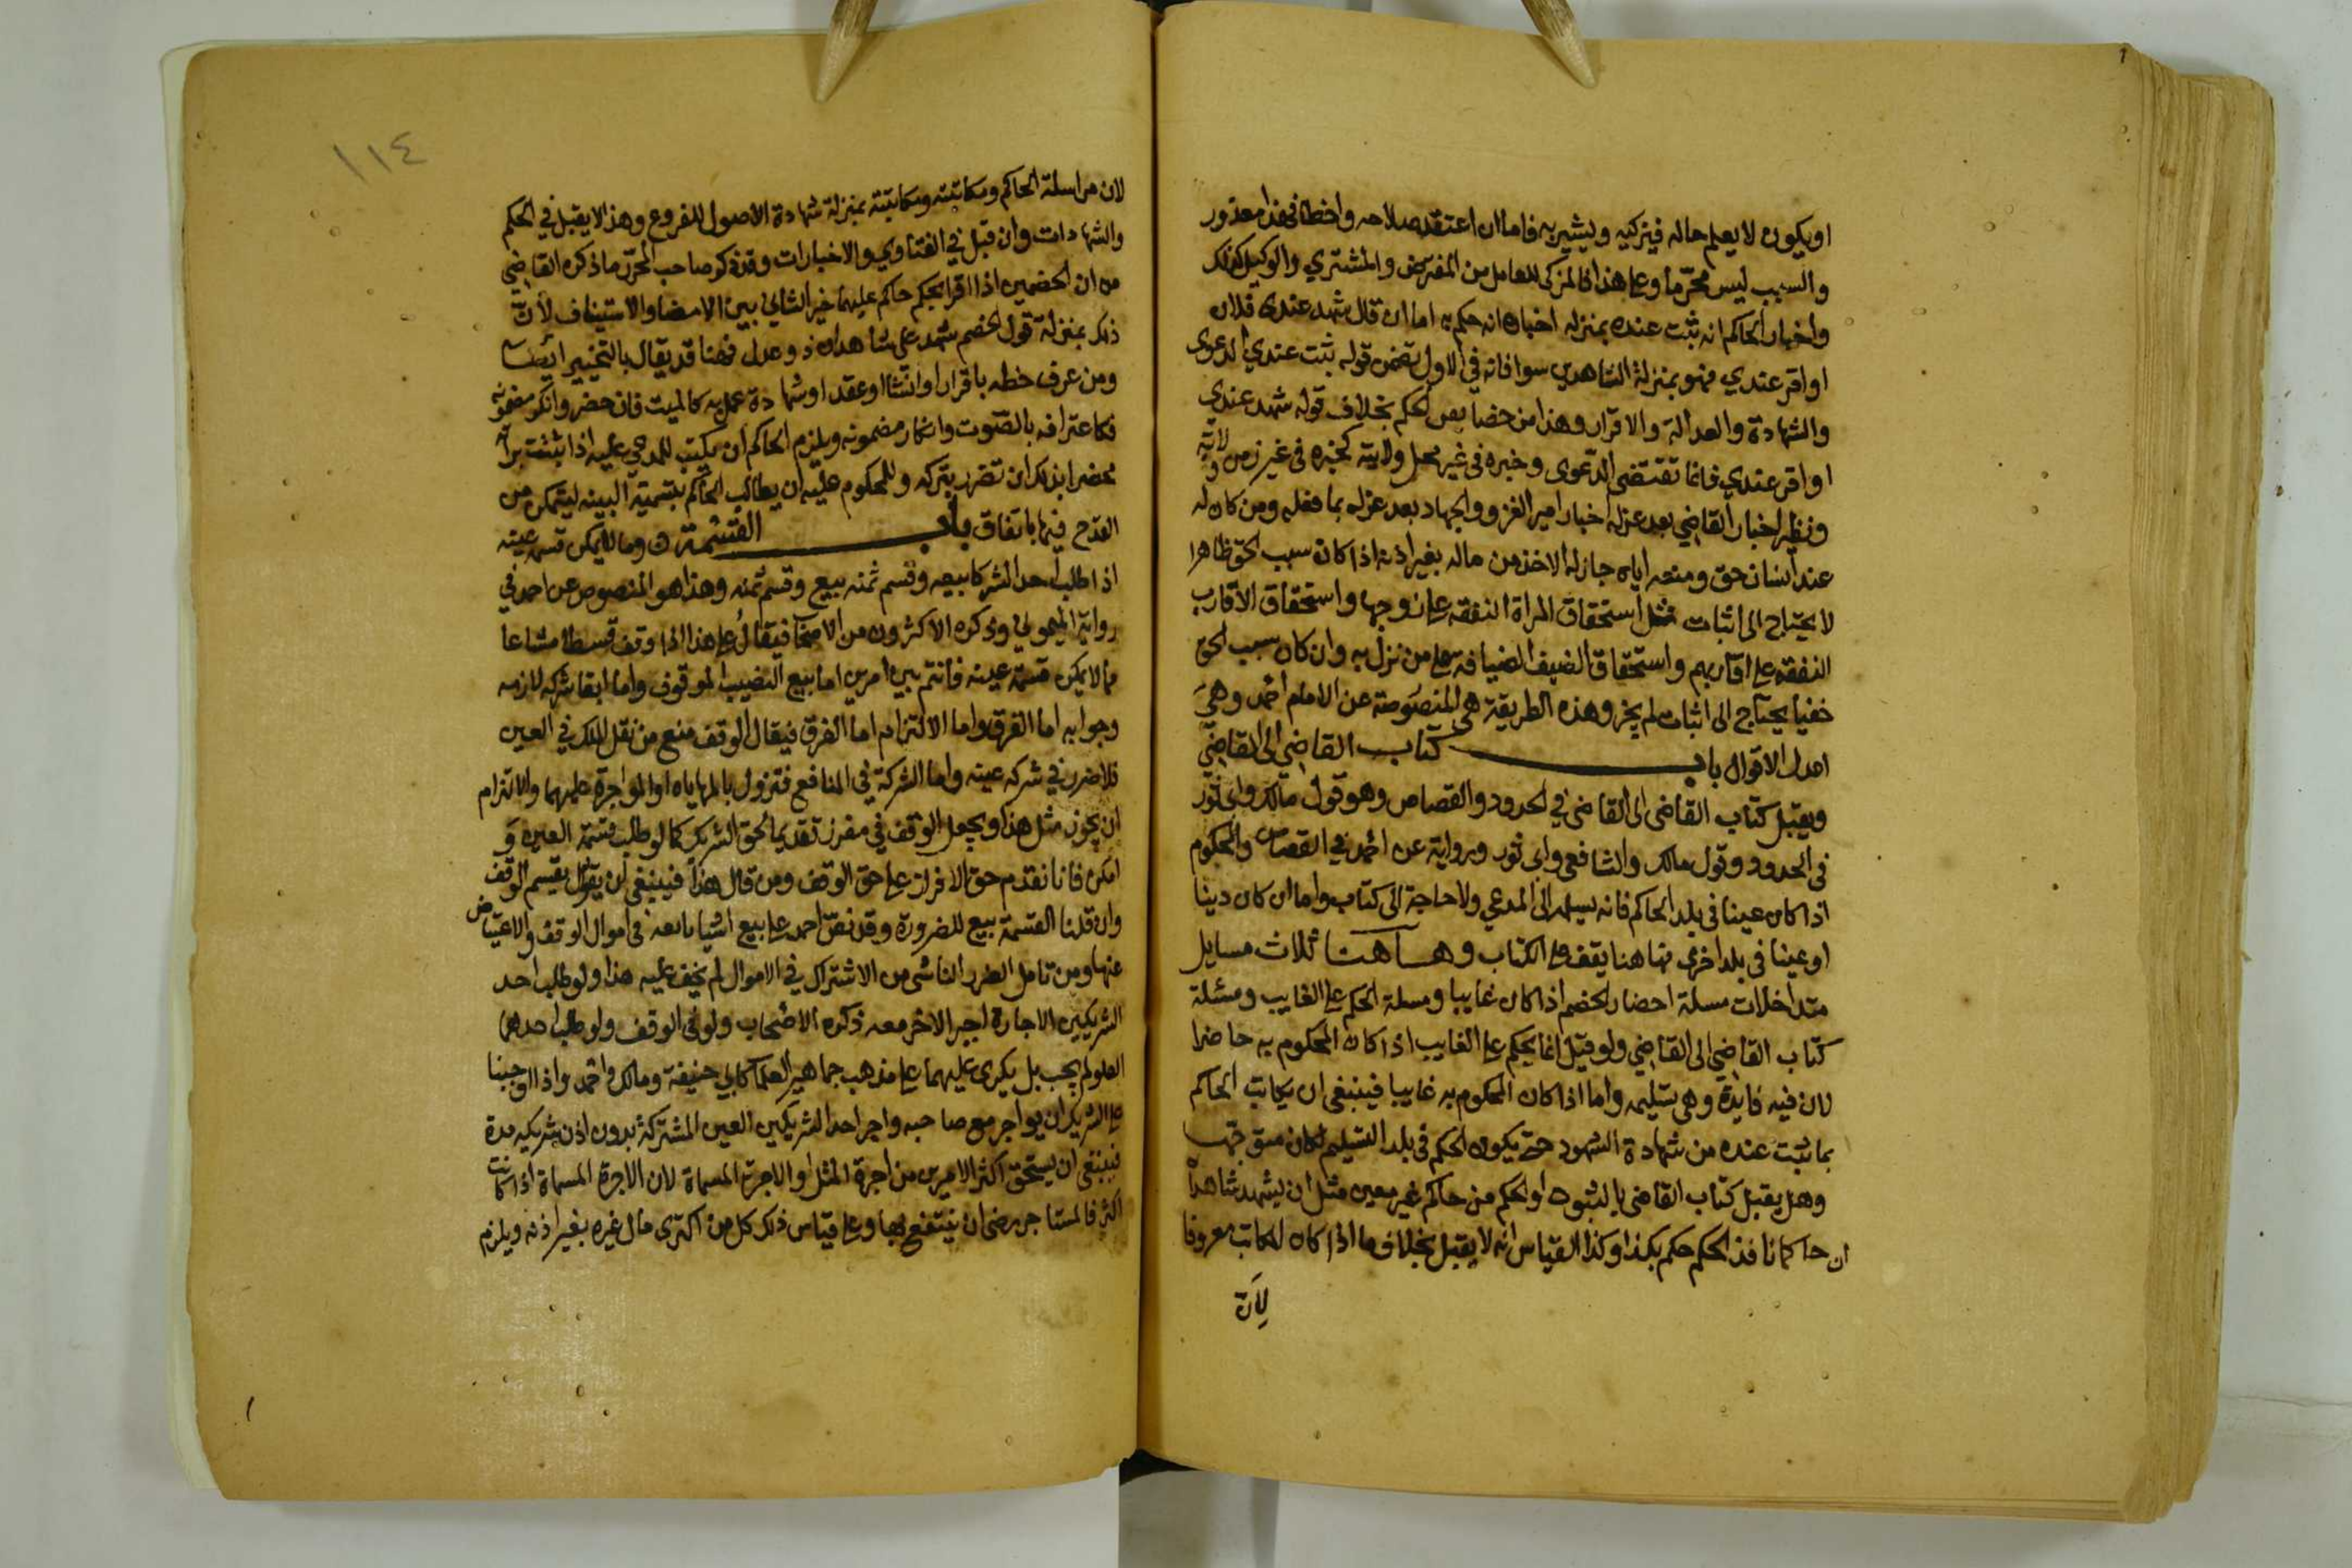 او يكون لا يعلم حاله فيزكيه ويشير به فاما ان اعتقد صلاحه واخطا فهذا معذور
والسبب ليس محرما وعلى هذا فالمزكي للعامل من المقرض والمشتري والوكيل كذلك
واخبار الحاكم انه ثبت عنده بمنزلة اخباره انه حكم به اما ان قال شهد عندي فلان
او اقر عندي فهو بمنزلة الشاهدين سوا فانه في الاول تضمن قوله ثبت عندي الدعوى
والشهادة والعدالة والاقرار وهذا من خصايص الحكم بخلاف قوله شهد عندي
او اقر عندي فانما تقتضي الدعوى وخبره في غير محل ولايته كخبره في غير زمن ولايته
ونظير اخبار القاضي بعد عزله اخبار امير الغزو والجهاد بعد عزله بما فعله ومن كان له
عند انسان حق ومنعه اياه جاز له الاخذ من ماله بغير اذنه اذا كان سبب الحق ظاهرا
لا يحتاج الى اثبات مثل استحقاق المراة النفقة على زوجها واستحقاق الاقارب
النفقة على اقاربهم واستحقاق الضيف الضيافة على من نزل به وان كان سبب الحق
خفيا يحتاج الى اثبات لم يجز وهذه الطريقة هي المنصوصة عن الامام احمد وهي
اعدل الاقوال باب كتاب القاضي الى القاضي
ويقبل كتاب القاضي الى القاضي في الحدود والقصاص وهو قول مالك وابي ثور
في الحدود وقول مالك والشافعي وابي ثور ورواية عن احمد في القصاص والمحكوم
اذا كان عينا في بلد الحاكم فانه يسلمه الى المدعي ولا حاجة الى كتاب واما ان كان دينا
او عينا في بلد اخرى فهاهنا يقف على الكتاب وهاهنا ثلاث مسايل
متداخلات مسلة احضار الخصم اذا كان غايبا ومسلة الحكم على الغايب ومسئلة
كتاب القاضي الى القاضي ولو قيل انما يحكم على الغايب اذا كان المحكوم به حاضرا
لان فيه فايدة وهي تسليمه واما اذا كان المحكوم به غايبا فينبغي ان يكاتب الحاكم
بما ثبت عنده من شهادة الشهود حتى يكون الحكم في بلد التسليم لكان متوجها
وهل يقبل كتاب القاضي بالثبوت او الحكم من حاكم غير معين مثل ان يشهد شاهدا
ان حاكما نافذ الحكم حكم بكذا وكذا القياس انه لا يقبل بخلاف ما اذا كان الكاتب معروفا
لان
١١٤
لان مراسلة الحاكم ومكاتبته ومكاتبته بمنزلة شهادة الاصول للفروع وهذا لا يقبل في الحكم
والشهادات وان قبل في الفتاوي والاخبارات وقد ذكر صاحب المحرر ما ذكره القاضي
من ان الخصمين اذا اقرا بحكم حاكم عليهما خير الثاني بين الامضا والاستيناف لان
ذلك بمنزلة قول الخصم شهد علي شاهدان ذوعدل فهنا قد يقال بالتخيير ايضا
ومن عرف خطه باقرار او انشا او عقد او شهادة عمل به كالميت فان حضر وانكر مضمونه
فكاعترافه بالصوت وانكار مضمونه ويلزم الحاكم ان يكتب للمدعي عليه اذا ثبتت براة
محضرا بذلك ان تضرر بتركه وللمحكوم عليه ان يطالب الحاكم بتسمية البينة ليتمكن من
القدح فيها باتفاق باب القسمة وما لا يمكن قسمة عينه
اذا طلب احد الشركا بيعه وقسم ثمنه بيع وقسم ثمنه وهذا هو المنصوص عن احمد في
رواية الميموني وذكره الاكثرون من الاصحاب فيقال على هذا اذا وقف قسطا مشاعا
مما لا يمكن قسمة عينه فانتم بين امرين اما بيع النصيب الموقوف واما ابقا شركة لازمه
وجوابه اما الفرق واما الالتزام اما الفرق فيقال الوقف منع من نقل الملك في العين
فلا ضرر في شركة عينه واما الشركة في المنافع فتزول بالمهاياه او المواجرة عليهما والالتزام
ان يجوز مثل هذا ويجعل الوقف في مفرز تقديما لحق الشريك كما لو طلب قسمة العين و
امكن فانا نقدم حق الافراز على حق الوقف ومن قال هذا فينبغي ان يقول بقسم الوقف
وان قلنا القسمة بيع للضرورة وقد نص احمد على بيع اشيا تابعه في اموال الوقف والاعتياض
عنها ومن تامل الضرر الناشي من الاشتراك في الاموال لم يخف عليه هذا ولو طلب احد
الشريكين الاجارة اجبر الاخر معه ذكره الاصحاب ولو في الوقف ولو طلب احدهما
العلو لم يجب بل يكرى عليهما على مذهب جماهير العلما كابي حنيفة ومالك واحمد واذا اوجبنا
على الشريك ان يواجر مع صاحبه واجر احد الشريكين العين المشتركة بدون اذن شريكه مدة
فينبغي ان يستحق اكثر الامرين من اجرة المثل او الاجرة المسماة لان الاجرة المسماة اذا كانت
اكثر فالمستاجر رضي ان ينتفع بها وعلى قياس ذلك كل من اكترى مال غيره بغير اذنه ويلزم